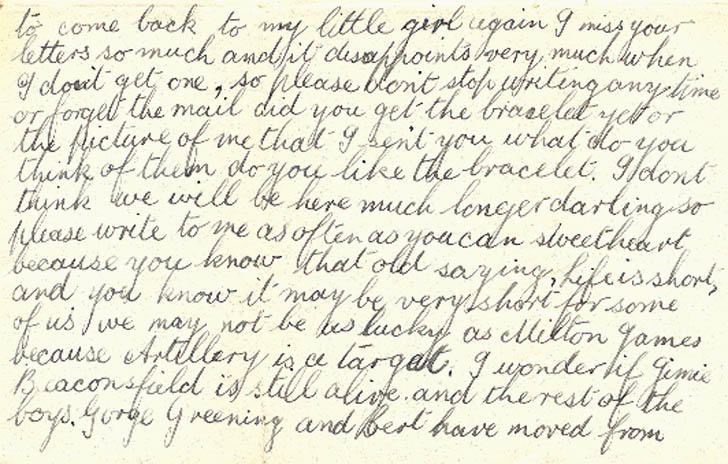 to come back to my little girl again I miss your
letters so much and it disappoints very much when
I dont get one, so please dont stop writing any time
or forget the mail did you get the bracelet yet or
the picture of me that I sent you what do you
think of them do you like the bracelet. I dont
think we will be here much longer darling so
please write to me as often as you can sweetheart
because you know that old saying, Life is short,
and you know it may be very short for some
of us, we may not be us lucky as Milton James
because Artillery is a target. I wonder if Jimie
Beaconsfield is still alive. and the rest of the
boys. Gorge Greening and Bert have moved from